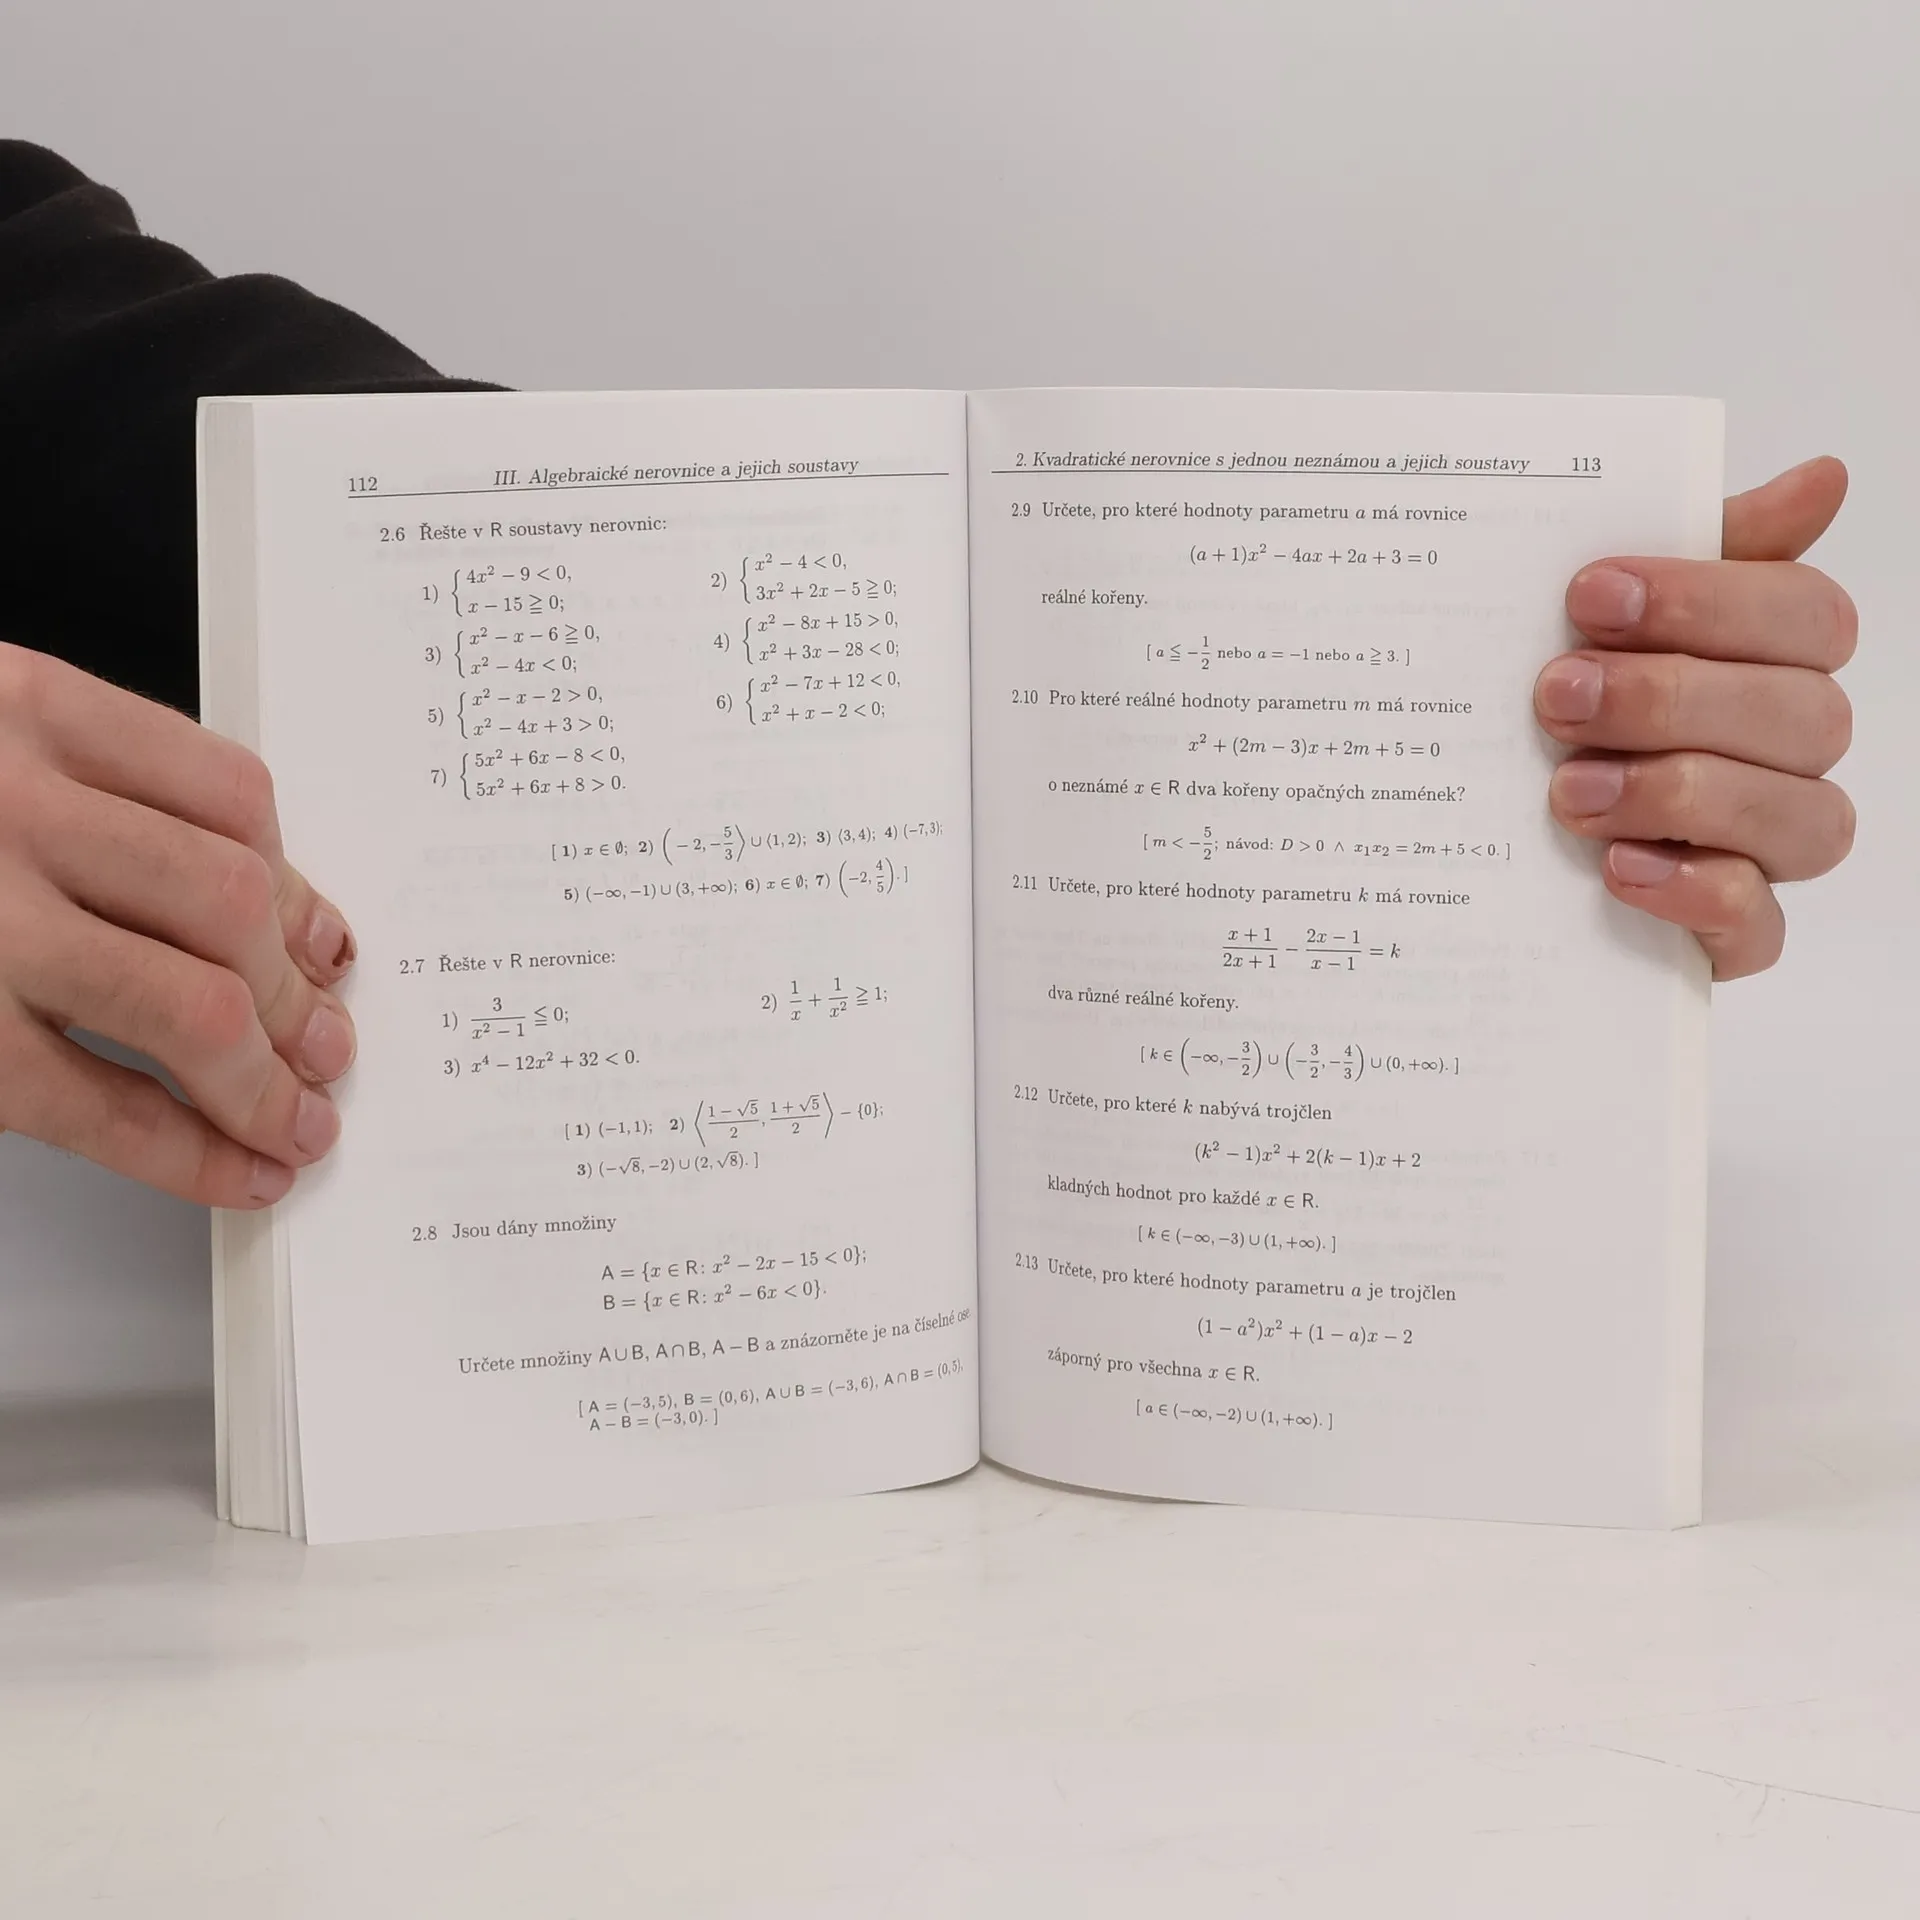 112 III. Algebraické nerovnice a jejich soustavy
2.6 Řešte v R soustavy nerovnic:
1) { 4x² − 9 < 0, x − 15 ≧ 0;
2) { x² − 4 < 0, 3x² + 2x − 5 ≧ 0;
3) { x² − x − 6 ≧ 0, x² − 4x < 0;
4) { x² − 8x + 15 > 0, x² + 3x − 28 < 0;
5) { x² − x − 2 > 0, x² − 4x + 3 > 0;
6) { x² − 7x + 12 < 0, x² + x − 2 < 0;
7) { 5x² + 6x − 8 < 0, 5x² + 6x + 8 > 0.
[ 1) x ∈ ∅; 2) (−2, −5/3⟩ ∪ ⟨1, 2); 3) ⟨3, 4); 4) (−7, 3);
5) (−∞, −1) ∪ (3, +∞); 6) x ∈ ∅; 7) (−2, 4/5). ]
2.7 Řešte v R nerovnice:
1) 3/(x² − 1) ≦ 0;
2) 1/x + 1/x² ≧ 1;
3) x⁴ − 12x² + 32 < 0.
[ 1) (−1, 1); 2) ⟨(1 − √5)/2, (1 + √5)/2⟩ − {0};
3) (−√8, −2) ∪ (2, √8). ]
2.8 Jsou dány množiny
A = {x ∈ R: x² − 2x − 15 < 0};
B = {x ∈ R: x² − 6x < 0}.
Určete množiny A∪B, A∩B, A − B a znázorněte je na číselné ose
[ A = (−3, 5), B = (0, 6), A ∪ B = (−3, 6), A ∩ B = (0, 5),
A − B = (−3, 0⟩. ]
2. Kvadratické nerovnice s jednou neznámou a jejich soustavy 113
2.9 Určete, pro které hodnoty parametru a má rovnice
(a + 1)x² − 4ax + 2a + 3 = 0
reálné kořeny.
[ a ≦ −1/2 nebo a = −1 nebo a ≧ 3. ]
2.10 Pro které reálné hodnoty parametru m má rovnice
x² + (2m − 3)x + 2m + 5 = 0
o neznámé x ∈ R dva kořeny opačných znamének?
[ m < −5/2; návod: D > 0 ∧ x₁x₂ = 2m + 5 < 0. ]
2.11 Určete, pro které hodnoty parametru k má rovnice
(x + 1)/(2x + 1) − (2x − 1)/(x − 1) = k
dva různé reálné kořeny.
[ k ∈ (−∞, −3/2) ∪ (−3/2, −4/3) ∪ (0, +∞). ]
2.12 Určete, pro které k nabývá trojčlen
(k² − 1)x² + 2(k − 1)x + 2
kladných hodnot pro každé x ∈ R.
[ k ∈ (−∞, −3) ∪ ⟨1, +∞). ]
2.13 Určete, pro které hodnoty parametru a je trojčlen
(1 − a²)x² + (1 − a)x − 2
záporný pro všechna x ∈ R.
[ a ∈ (−∞, −2) ∪ ⟨1, +∞). ]